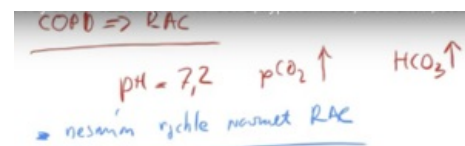 COPD => RAC
pH = 7,2 pCO₂ ↑ HCO₃ ↑
- nesmím rychle navrnet RAC